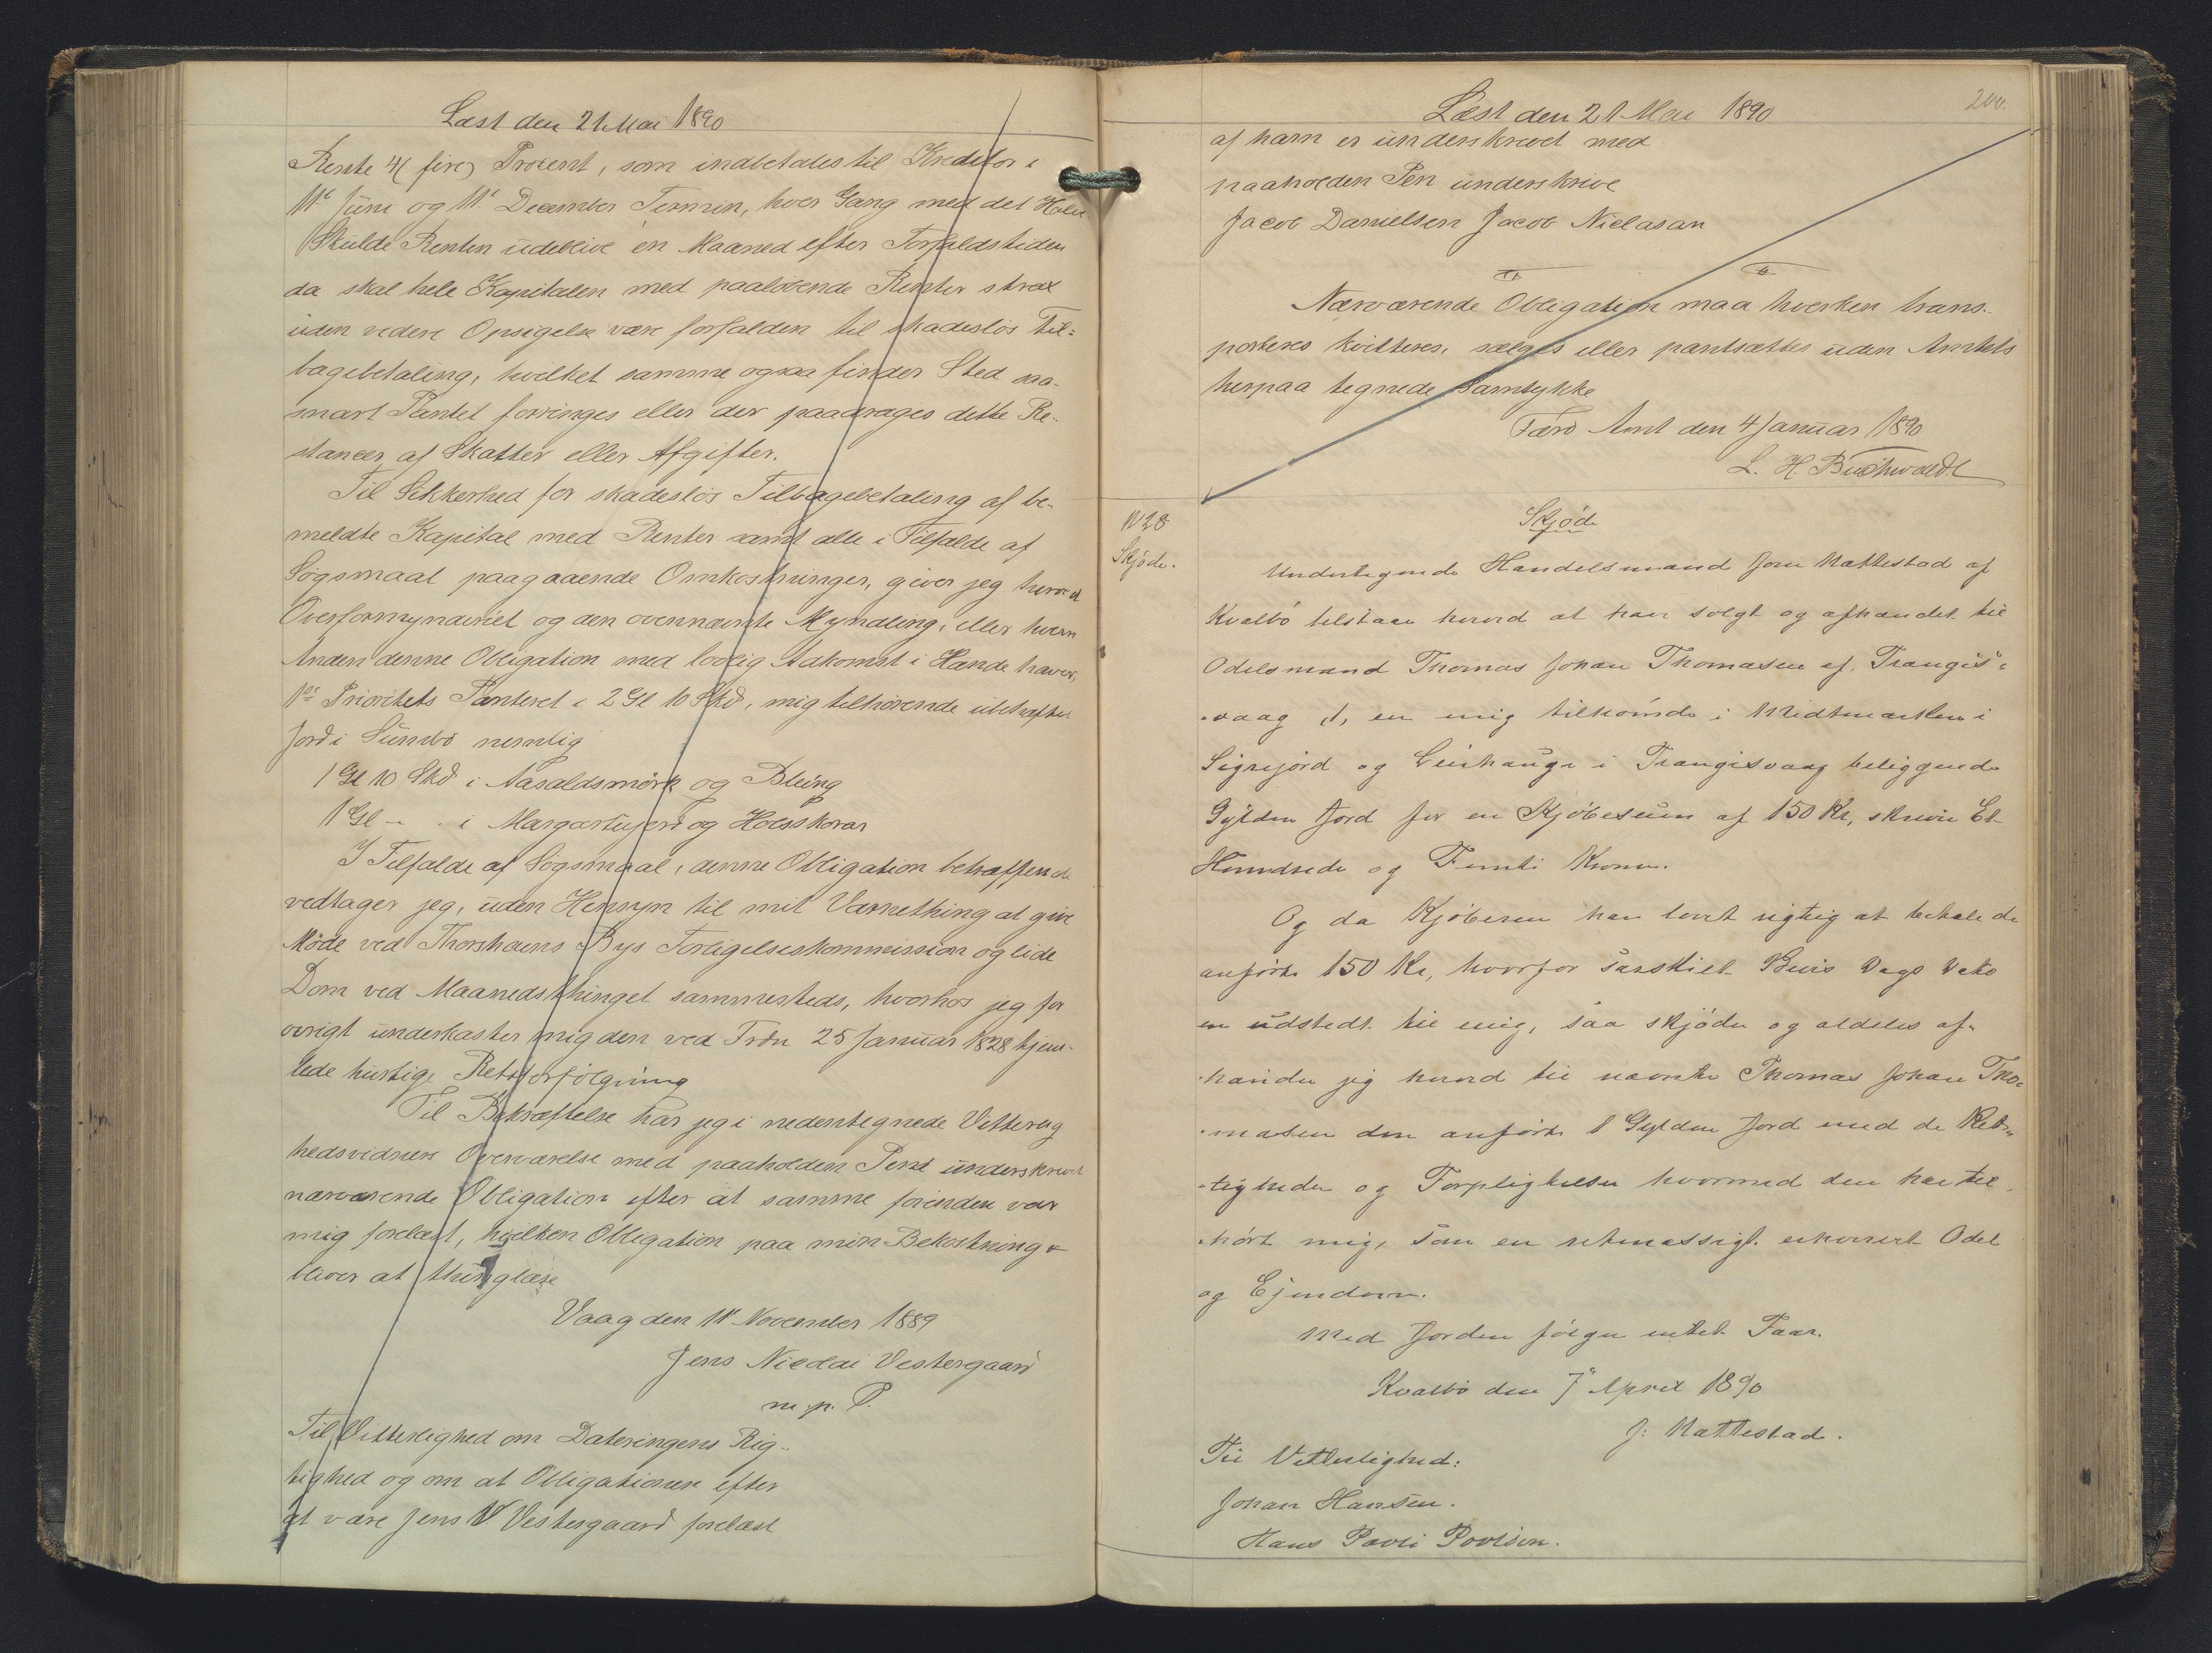 Læst den 21 Mai 1890
Rente 4 (fire) Procent, som indbetales til Kreditor i
11e Juni og 11e December Termin, hver Gang med det Halve
Skulde Renten udeblive en Maaned efter Forfaldstiden
da skal hele Kapitalen med paaløbende Renter strax
uden videre Opsigelse være forfalden til skadesløs Til=
bagebetaling, hvilket samme ogsaa finder Sted saa-
snart Pantet forringes eller der paadrages dette Re-
stancer af Skatter eller Afgifter.
Til Sikkerhed for skadesløs Tilbagebetaling af be-
meldte Kapital med Renter samt alle i Tilfælde af
Søgsmaal paagaaende Omkostninger, giver jeg herved
Overformynderiet og den ovennævnte Myndling, eller hvem
Anden denne Obligation med lovlig Adkomst i Hænde haver,
1ste Prioritets Panteret i 2 Gl 10 Skd, mig tilhørende
Jord i Sumbø nemlig
1 Gl 10 Skd i Aasaldsmørk og Bleing
1 Gl - - i og
I Tilfælde af Søgsmaal, denne Obligation betræffende
vedtager jeg, uden Hensyn til mit Værnething at give
Møde ved Thorshavns Bys Forligelseskommission og lide
Dom ved Maanedsthinget sammesteds, hvorhos jeg for
øvrigt underkaster mig den ved Frdn 25 Januar 1828 hjem-
lede hurtige Retsforfølgning
Til Bekræftelse har jeg i nedentegnede Vitterlig
hedsvidners Overværelse med paaholden Pen underskrevet
nærværende Obligation efter at samme forinden var
mig forelæst, hvilken Obligation paa min Bekostning
bliver at thinglæse
Vaag den 11 November 1889
Jens Nicolai Vestergaard
m. p. P.
Til Vitterlighed om Dateringens Rig-
tighed og om at Obligationen efter
at være Jens N Vestergaard forelæst
Læst den 21 Mai 1890
200.
af ham er underskrevet med
paaholden Pen underskrive
Jacob Danielsen Jacob Nielasan
Nærværende Obligation maa hverken trans-
porteres kvitteres, sælges eller pantsættes uden Amtets
herpaa tegnede Samtykke
Færø Amt den 4 Januar 1890
L. H. Buchwaldt
N 28
Skjøde.
Skjøde
Undertegnede Handelsmand Jorn Mattestad af
Kvalbø tilstaar herved at have solgt og afhændet til
Odelsmand Thomas Johan Thomasen af Trangis-
vaag 1, en mig tilhørende i Midtmarken i
Sigrejord og i Trangisvaag beliggende
Gylden Jord for en Kjøbesum af 150 Kr, skriver Et
Hundrede og Femti Kroner.
Og da Kjøberen har lovet rigtig at betale de
anførte 150 Kr, hvorfor særskilt Bevis Dags Dato
er udstedt til mig, saa skjøder og aldeles af-
hænder jeg herved til nævnte Thomas Johan Tho-
masen den anførte 1 Gylden Jord med de Ret-
tigheder og Forpligtelser hvormed den har til-
hørt mig, som en retmæssigt erhvervet Odel
og Ejendom.
Med Jorden følger intet Faar.
Kvalbø den 7 April 1890
J: Mattestad.
Til Vitterlighed:
Johan Hansen.
Hans Pavli Povlsen.